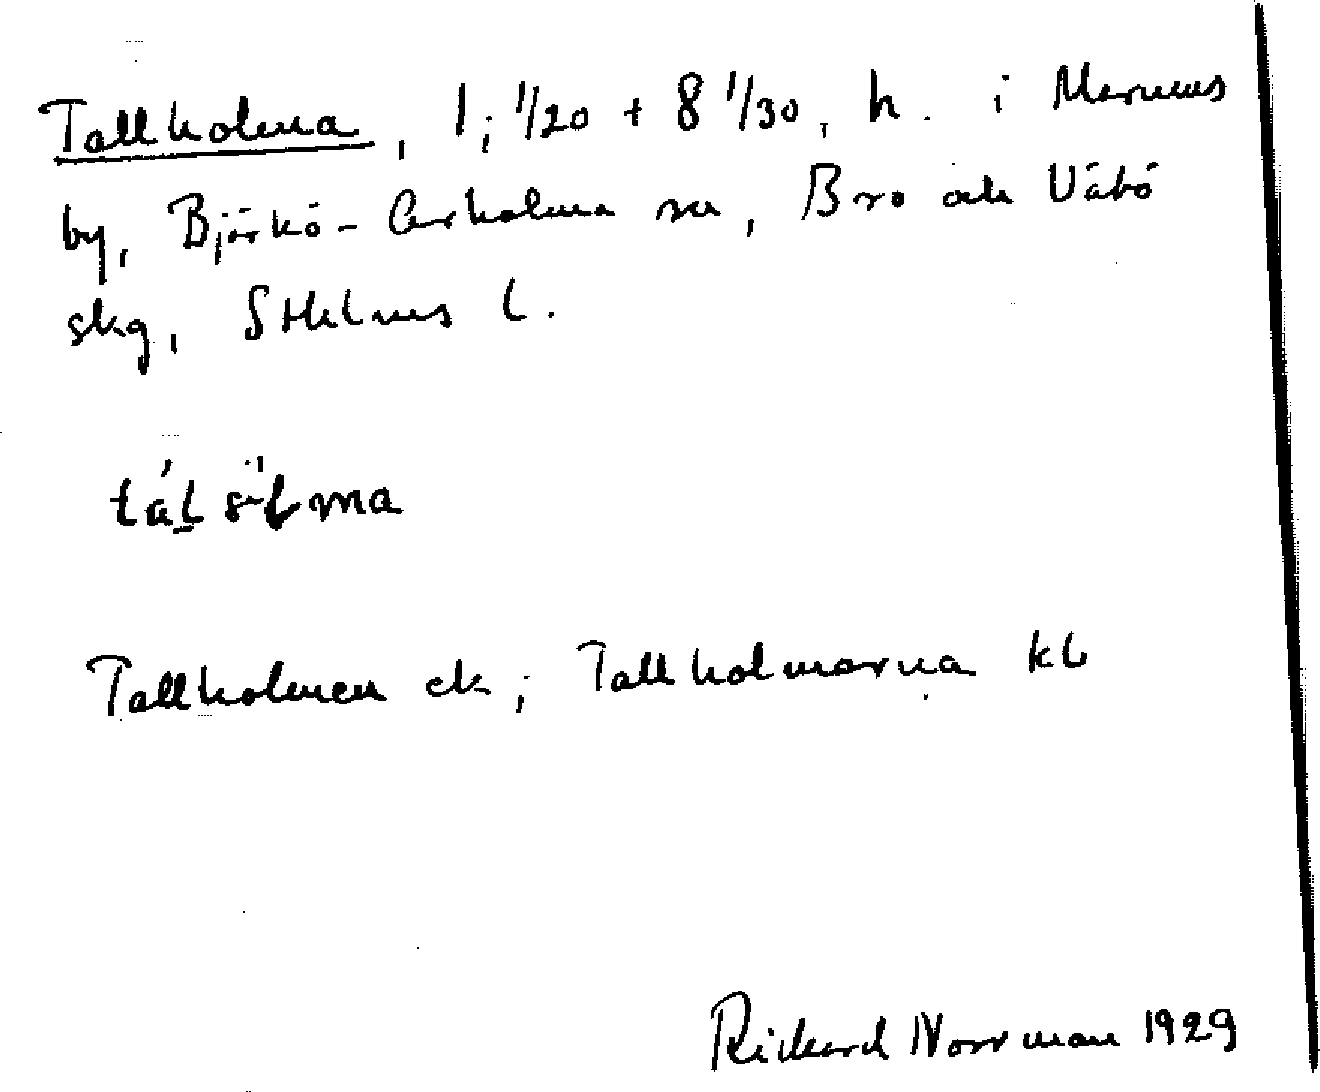 Tallholma, 1; 1/20 + 8 1/30, h. i Marums
by, Björkö-Arholma sn, Bro och Vätö
skg, Sthlms l.
Tallholmen ek; Tallholmarna kl
Rickard Norrman 1929